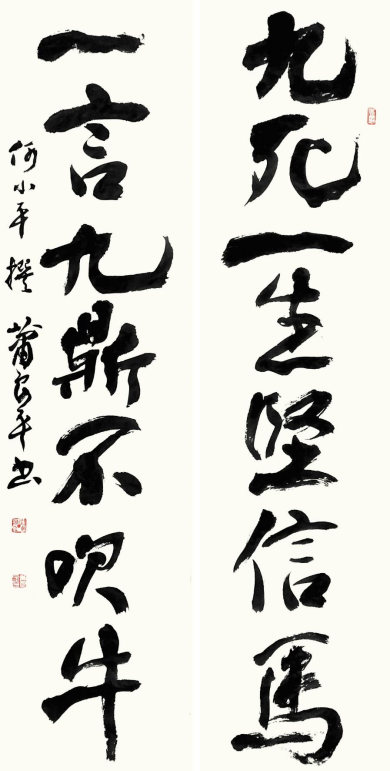 九死一生坚信马
一言九鼎不吹牛
何小平撰 萧良平书